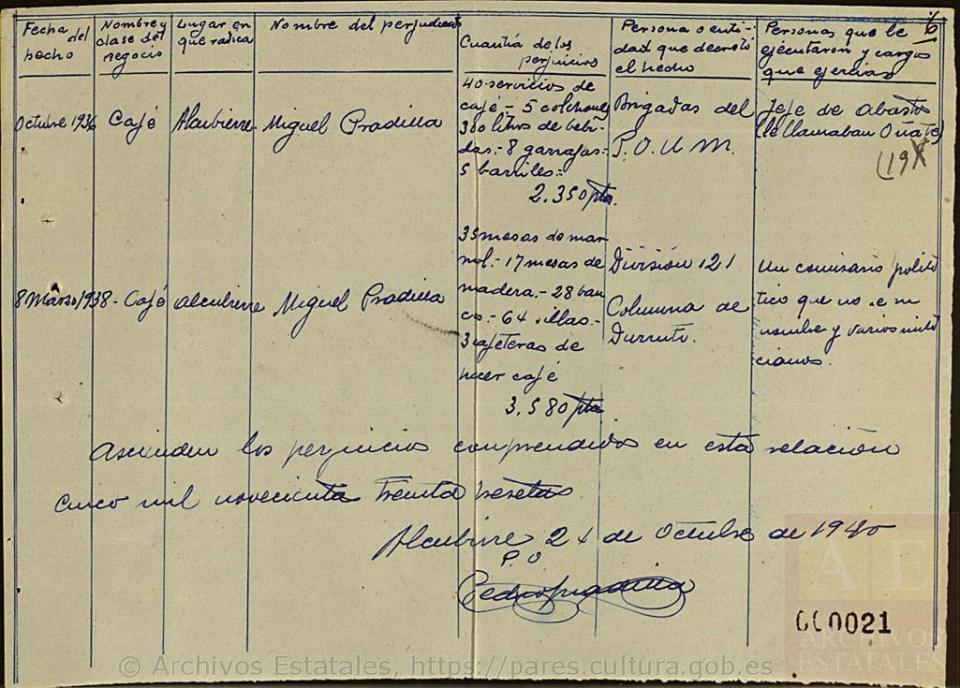 Fecha del hecho
Nombre y clase del negocio
Lugar en que radica
Nombre del perjudicado
Cuantía de los perjuicios
Persona o entidad que decretó el hecho
Personas que le ejecutaron y cargos que ejercian
6
Octubre 1936
Café
Alcubierre
Miguel Pradilla
40 servicios de
café - 5 colchones
300 litros de bebi-
das.- 8 garrafas.-
5 barriles.-
2.350 pta.
Brigadas del
P.O.U.M.
Jefe de abastos
(le llamaban Oñate)
(19
8 Marzo 1938 -
Café
Alcubierre
Miguel Pradilla
35 mesas de mar
mol.- 17 mesas de
madera.- 28 ban
cos.- 64 sillas.-
3 cafeteras de
hacer café
3.580 pta
División 121
Columna de
Durruti.
Un comisario polit
tico que no se su
nombre y varios mili
cianos.
Ascienden los perjuicios comprendidos en esta relación
cinco mil novecientas treinta pesetas.
Alcubierre 24 de Octubre de 1940
P.O
Pedro Pradilla
000021
AE
ARCHIVOS
ESTATALES
© Archivos Estatales, https://pares.cultura.gob.es